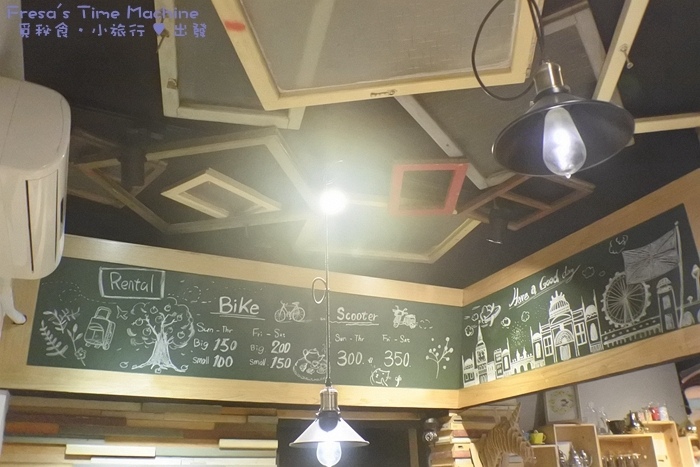 Fresa's Time Machine
覓秋食•小旅行♥出發
Rental
Bike
Scooter
Sun - Thr
Fri - Sat
Big 150
Big 200
Small 100
Small 150
Sun - Thr
Fri - Sat
300
350
Have a Good day